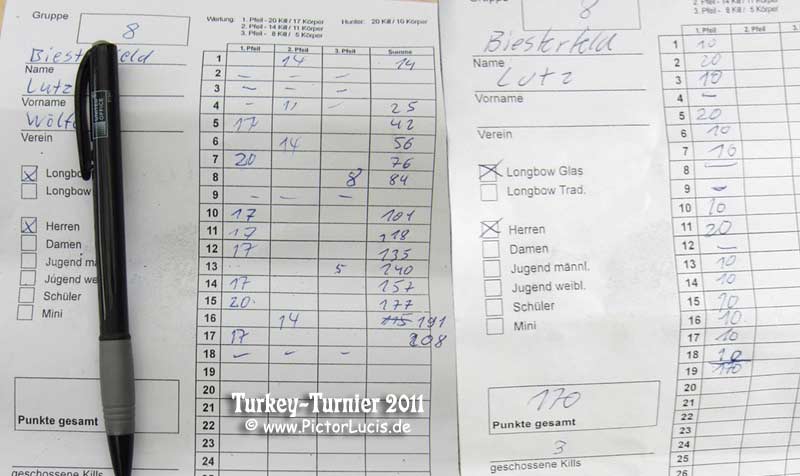 Gruppe 8
Wertung: 1. Pfeil - 20 Kill / 17 Körper Hunter: 20 Kill / 10 Körper
2. Pfeil - 14 Kill / 11 Körper
3. Pfeil - 8 Kill / 5 Körper
Biesterfeld
Name
Lutz
Vorname
Verein
Longbow
Herren
Damen
Jugend m
Jugend weibl
Schüler
Mini
Punkte gesamt
geschossene Kills
1. Pfeil 2. Pfeil 3. Pfeil Summe
1 14 14
2 – – –
3 – – –
4 – 11 – 25
5 17 42
6 14 56
7 20 76
8 8 84
9 – – –
10 17 101
11 17 118
12 17 135
13 5 140
14 17 157
15 20 177
16 14 191
17 17 208
18 – – –
19
20
21
22
23
24
UNITED OFFICE
Gruppe 8
3. Pfeil - 8 Kill / 5 Körper
Biesterfeld
Name
Lutz
Vorname
Verein
Longbow Glas
Longbow Trad.
Herren
Damen
Jugend männl.
Jugend weibl.
Schüler
Mini
170
Punkte gesamt
3
geschossene Kills
1. Pfeil 2. Pfeil
1 10
2 20
3 10
4 –
5 20
6 10
7 10
8 –
9 –
10 10
11 20
12 –
13 10
14 10
15 10
16 10
17 10
18 10
19 170
20
21
22
23
24
25
26
Turkey-Turnier 2011
© www.PictorLucis.de